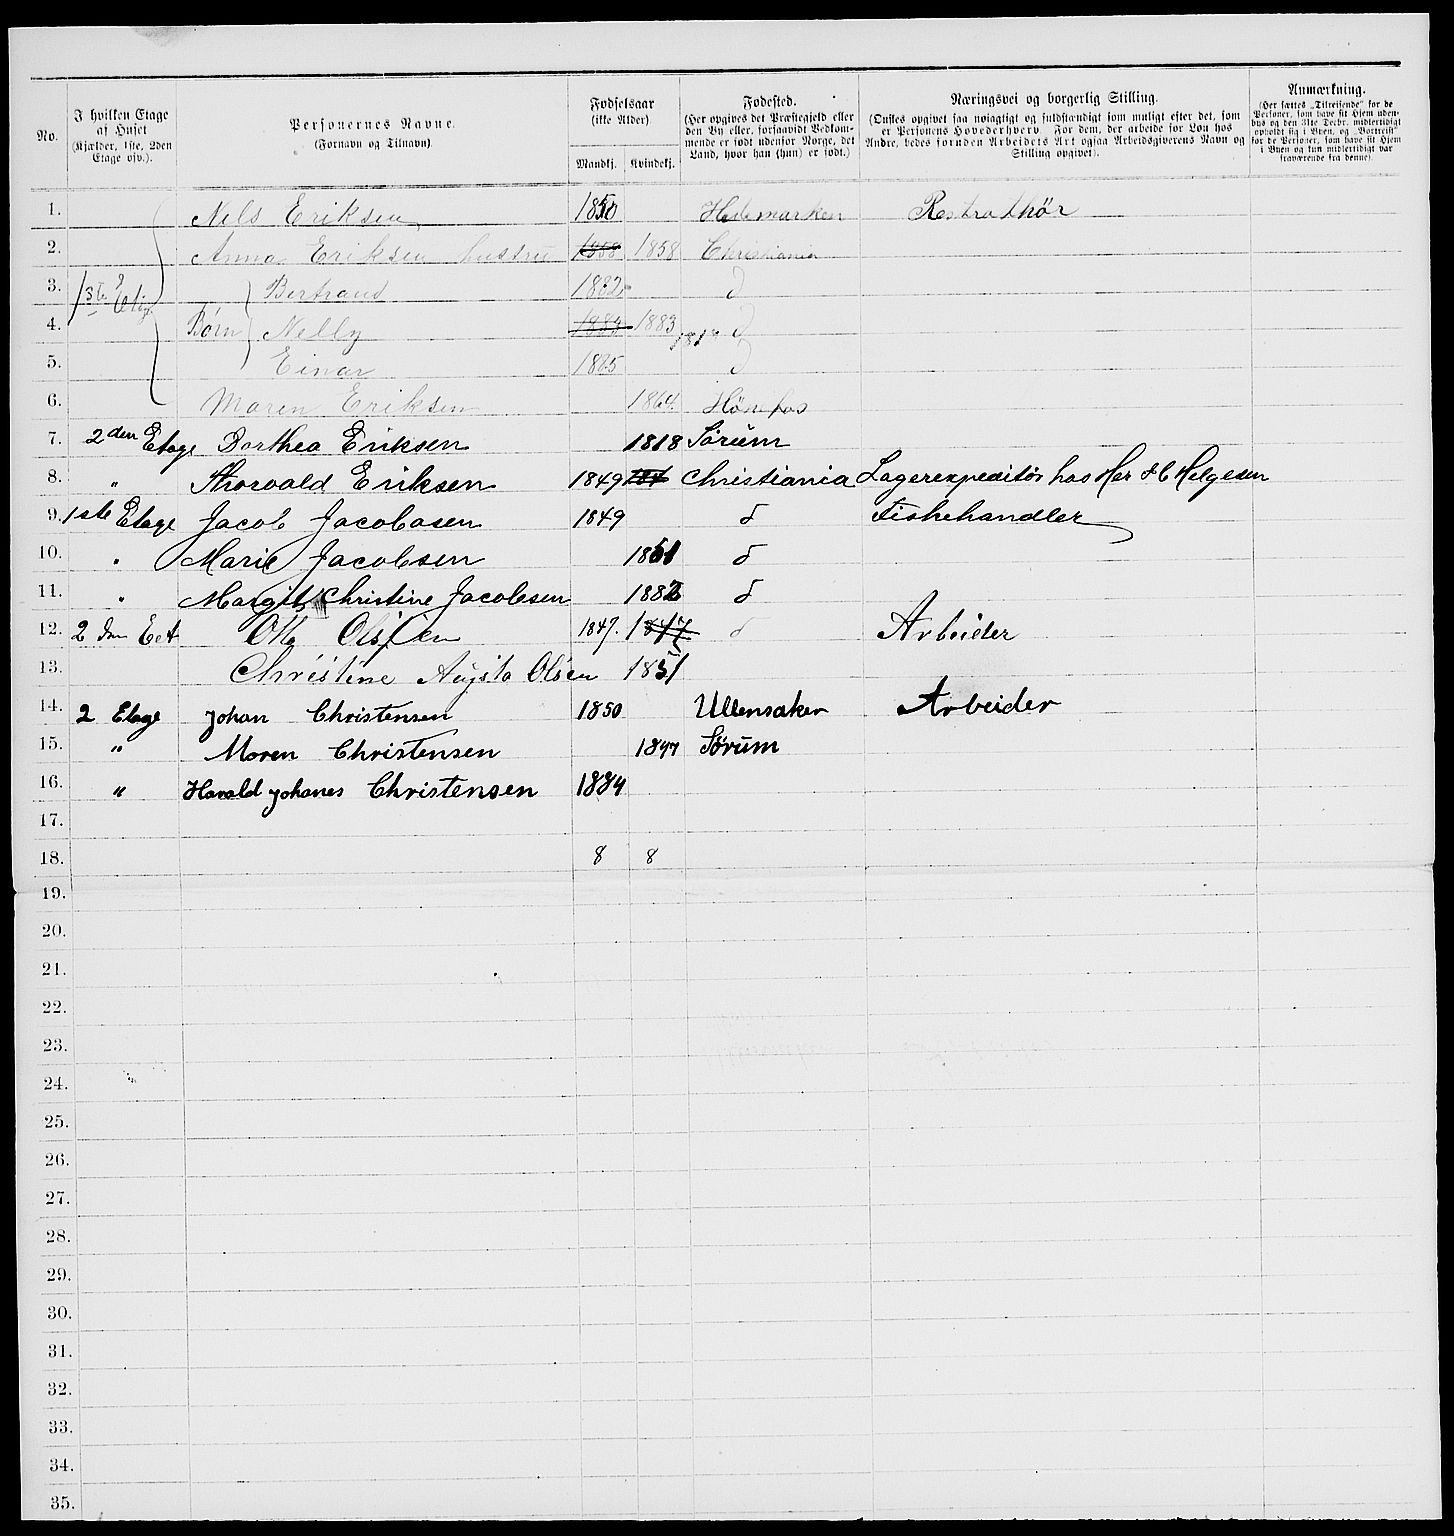 No.
I hvilken Etage af Huset (Kjælder, 1ste, 2den Etage osv.).
Personernes Navne. (Fornavn og Tilnavn).
Fødselsaar (ikke Alder).
Mandkj. Kvindekj.
Fødested. (Her opgives det Præstegjeld eller den By eller, forsaavidt Vedkommende er født udenfor Norge, det Land, hvor han (hun) er født.)
Næringsvei og borgerlig Stilling. (Ønskes opgivet saa nøiagtigt og fuldstændigt som muligt efter det, som er Personens Hovederhverv. For dem, der arbeide for Løn hos Andre, bedes foruden Arbeidets Art ogsaa Arbeidsgiverens Navn og Stilling opgivet).
Anmærkning. (Her sættes „Tilreisende" for de Personer, som have sit Hjem udenbys og den 31te Decbr. midlertidigt opholdt sig i Byen, og „Bortreist" for de Personer, som have sit Hjem i Byen og kun midlertidigt var fraværende fra denne).
1. Nils Eriksen 1850 Hedemarken
2. Anna Eriksen hustru 1858 1858 Christiania
3. Bertrand 1882 d
4. Børn Nelly 1883 1883 1818 d
5. Einar 1885 d
6. Maren Eriksen 1864. Hönefos
7. 2den Etage Dorthea Eriksen 1818 Sørum
8. " Thorvald Eriksen 1849 Christiania Lagerexpeditör hos Her H Helgesen
9. 1ste Etage Jacob Jacobsen 1849 d Fiskehandler
10. " Marie Jacobsen 1851 d
11. " Margit Christine Jacobsen 1882 d
12. 2 den Eet Otto Olsen 1847. 1847 d Arbeider
13. Christine Augsta Olsen 1851
14. 2 Etage Johan Christensen 1850 Ullensaker Arbeider
15. " Maren Christensen 1847 Sørum
16. " Harald Johanes Christensen 1884
17.
18. 8 8
19.
20.
21.
22.
23.
24.
25.
26.
27.
28.
29.
30.
31.
32.
33.
34.
35.